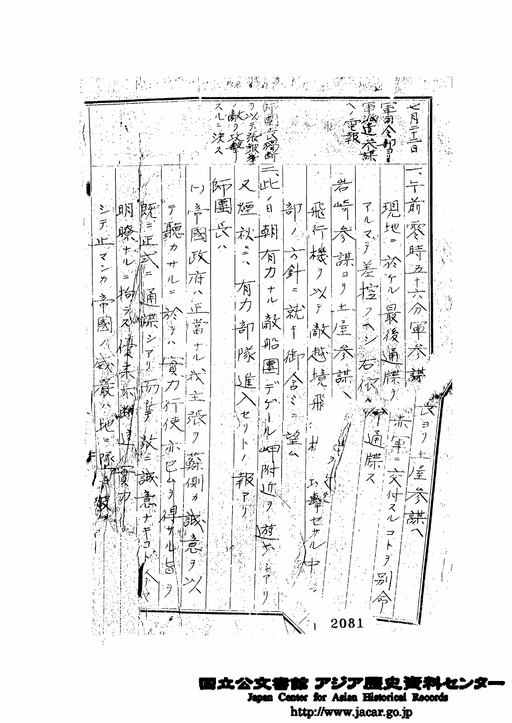 七月二十二日
軍司令部ヨリ
軍派遣参謀
ヘ電報
一、午前零時五十六分軍参謀長ヨリ土屋参謀ヘ
現地ニ於ケル最後通牒ヲ赤軍ニ交付スルコトヲ別命
アルマテ差控フヘシ右依命通牒ス
岩崎参謀ヨリ土屋参謀ヘ
飛行機ヲ以テ敵越境飛
部ノ方針ニ就キ御含ミヲ望ム
師団長独断
ヲ以テ張鼓峯
ノ敵ヲ攻撃
スルニ決ス
二、此ノ日朝有力ナル敵船團デゲール岬附近ヲ遊弋シアリ
又煙秋ニハ有力部隊進入セリトノ報アリ
師團長ハ
(1)帝國政府ノ正當ナル我主張ヲ蘇側カ誠意ヲ以
テ聽カサルニ於テハ實力行使亦已ムヲ得サル旨ヲ
既ニ正式ニ通牒シアリ而シテ敵ニ誠意ナキコト
明瞭ナルニ拘ラス優柔不断
シテ止マンカ帝國ノ威嚴ハ地ニ墜
2031
国立公文書館 アジア歴史資料センター
Japan Center for Asian Historical Records
http://www.jacar.go.jp